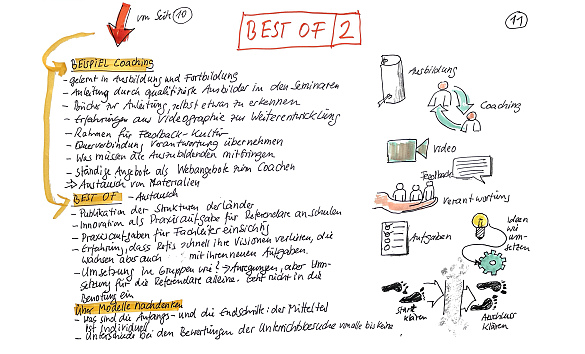 von Seite 10
BEST OF 2
11
BEISPIEL Coaching
- gelernt in Ausbildung und Fortbildung
- Anleitung durch qualifizierte Ausbilder in den Seminaren
- Brüche zur Anleitung, selbst etwas zu erkennen
- Erfahrungen aus Videographie zur Weiterentwicklung
- Rahmen für Feedback-Kultur
- Querverbindung Verantwortung übernehmen
- Was müssen die Auszubildenden mitbringen
- Ständige Angebote als Webangebote zum Coachen
=> Austausch von Materialien
BEST OF - Austausch
- Publikation der Strukturen der Länder
- Innovation als Praxisaufgabe für Referendare an Schulen
- Praxisaufgaben für Fachleiter einsichtig
- Erfahrung, dass Refis schnell ihre Visionen verlieren, die
wachsen aber auch mit ihren neuen Aufgaben.
- Umsetzung in Gruppen wie? -> Anregungen, aber Um-
setzung für die Referendare alleine. Geht nicht in die
Benotung ein
Über Modelle nachdenken
- Was sind die Anfangs- und die Endschritte: das Mittelteil
ist individuell
- Unterschiede bei den Bewertungen der Unterrichtsbesuche von alle bis keine
Ausbildung
Coaching
Video
Feedback
Verantwortung
Aufgaben
Ideen
wie
um-
setzen
Start
klären
Abschluss
klären